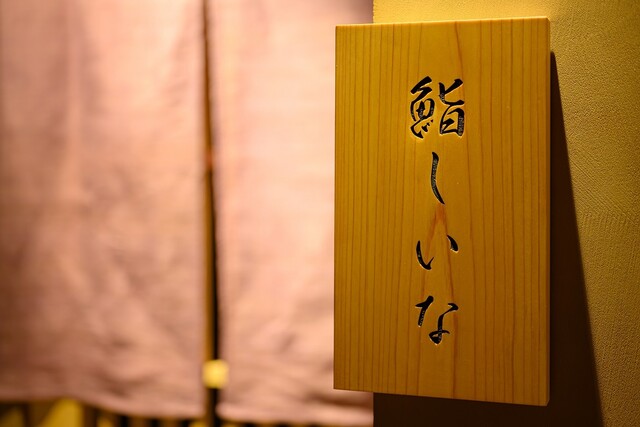 鮨しいな